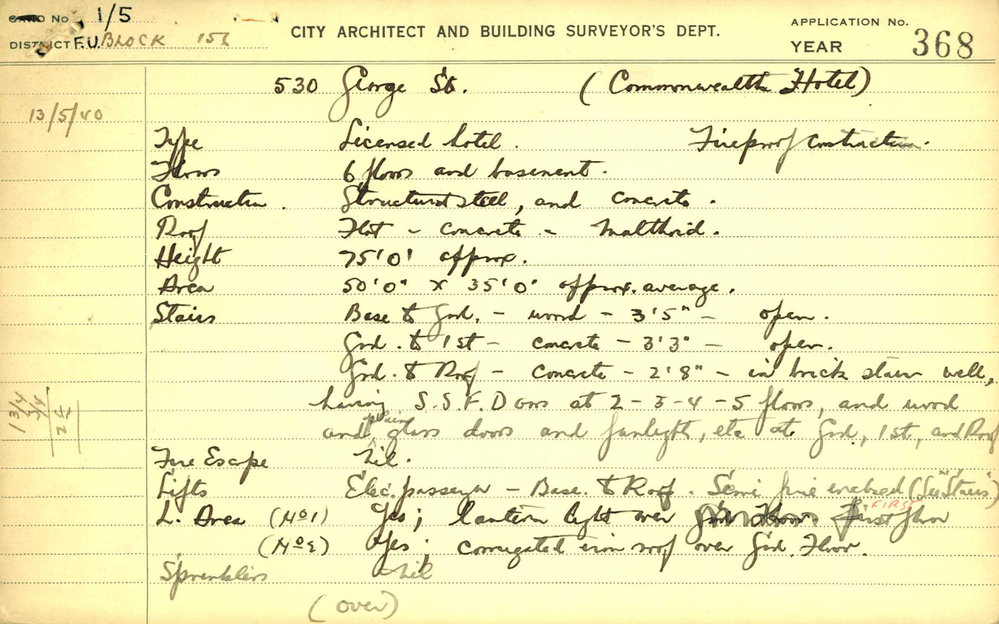 CARD No. 1/5
CITY ARCHITECT AND BUILDING SURVEYOR'S DEPT.
APPLICATION No.
DISTRICT F.U. BLOCK 156
YEAR 368
530 George St. (Commonwealth Hotel)
13/5/40
Type Licensed hotel. Fireproof construction.
Floors 6 floors and basement.
Construction. Structural steel, and concrete.
Roof Flat - concrete - Malthoid.
Height 75'0" approx.
Area 50'0" x 35'0" approx. average.
Stairs Base to Grd. - wood - 3'5" - open.
Grd. to 1st - concrete - 3'3" - open.
Grd. to Roof - concrete - 2'8" - in brick stair well,
having S.S.F. Doors at 2-3-4-5 floors, and wood
and plain glass doors and fanlight, etc at Grd, 1st, and Roof
1 3/4
3/4
2 1/2
Fire Escape Nil.
Lifts Elec. passenger - Base. to Roof. Semi fire enclosed (See "Stairs")
L. Area (No 1) Yes; lantern light over First floor
FIRST
(No 2) Yes; corrugated iron roof over Grd. Floor.
Sprinklers Nil
(over)